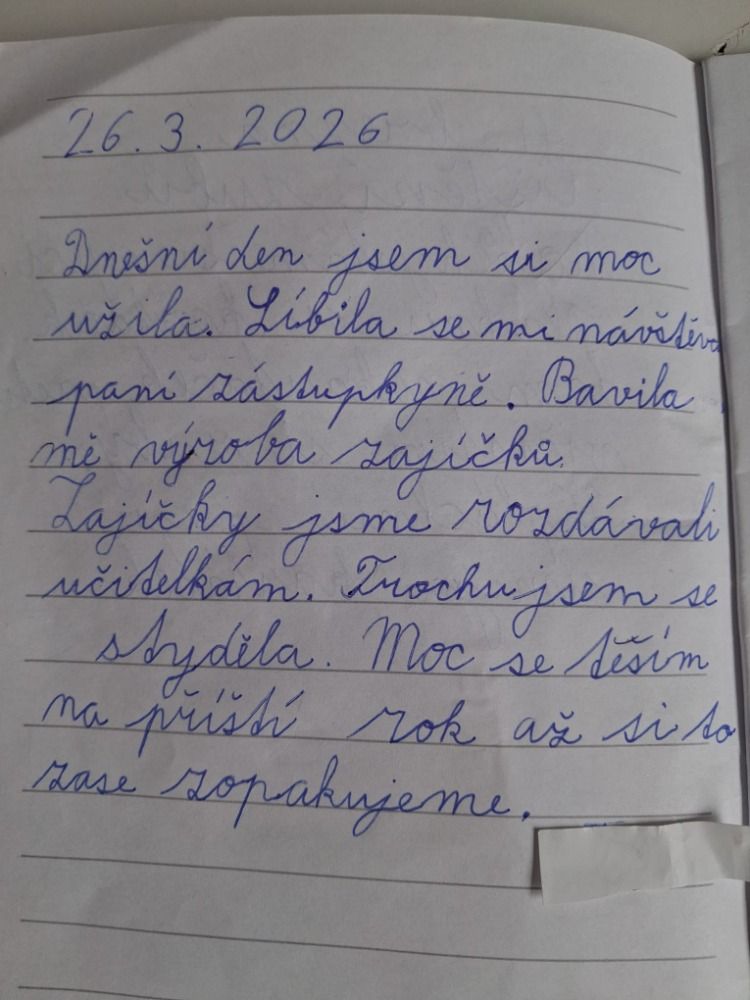 26.3. 2026
Dnešní den jsem si moc
užila. Líbila se mi návštěva
paní zástupkyně. Bavila
mě výroba zajíčků.
Zajíčky jsme rozdávali
učitelkám. Trochu jsem se
styděla. Moc se těším
na příští rok až si to
zase zopakujeme.